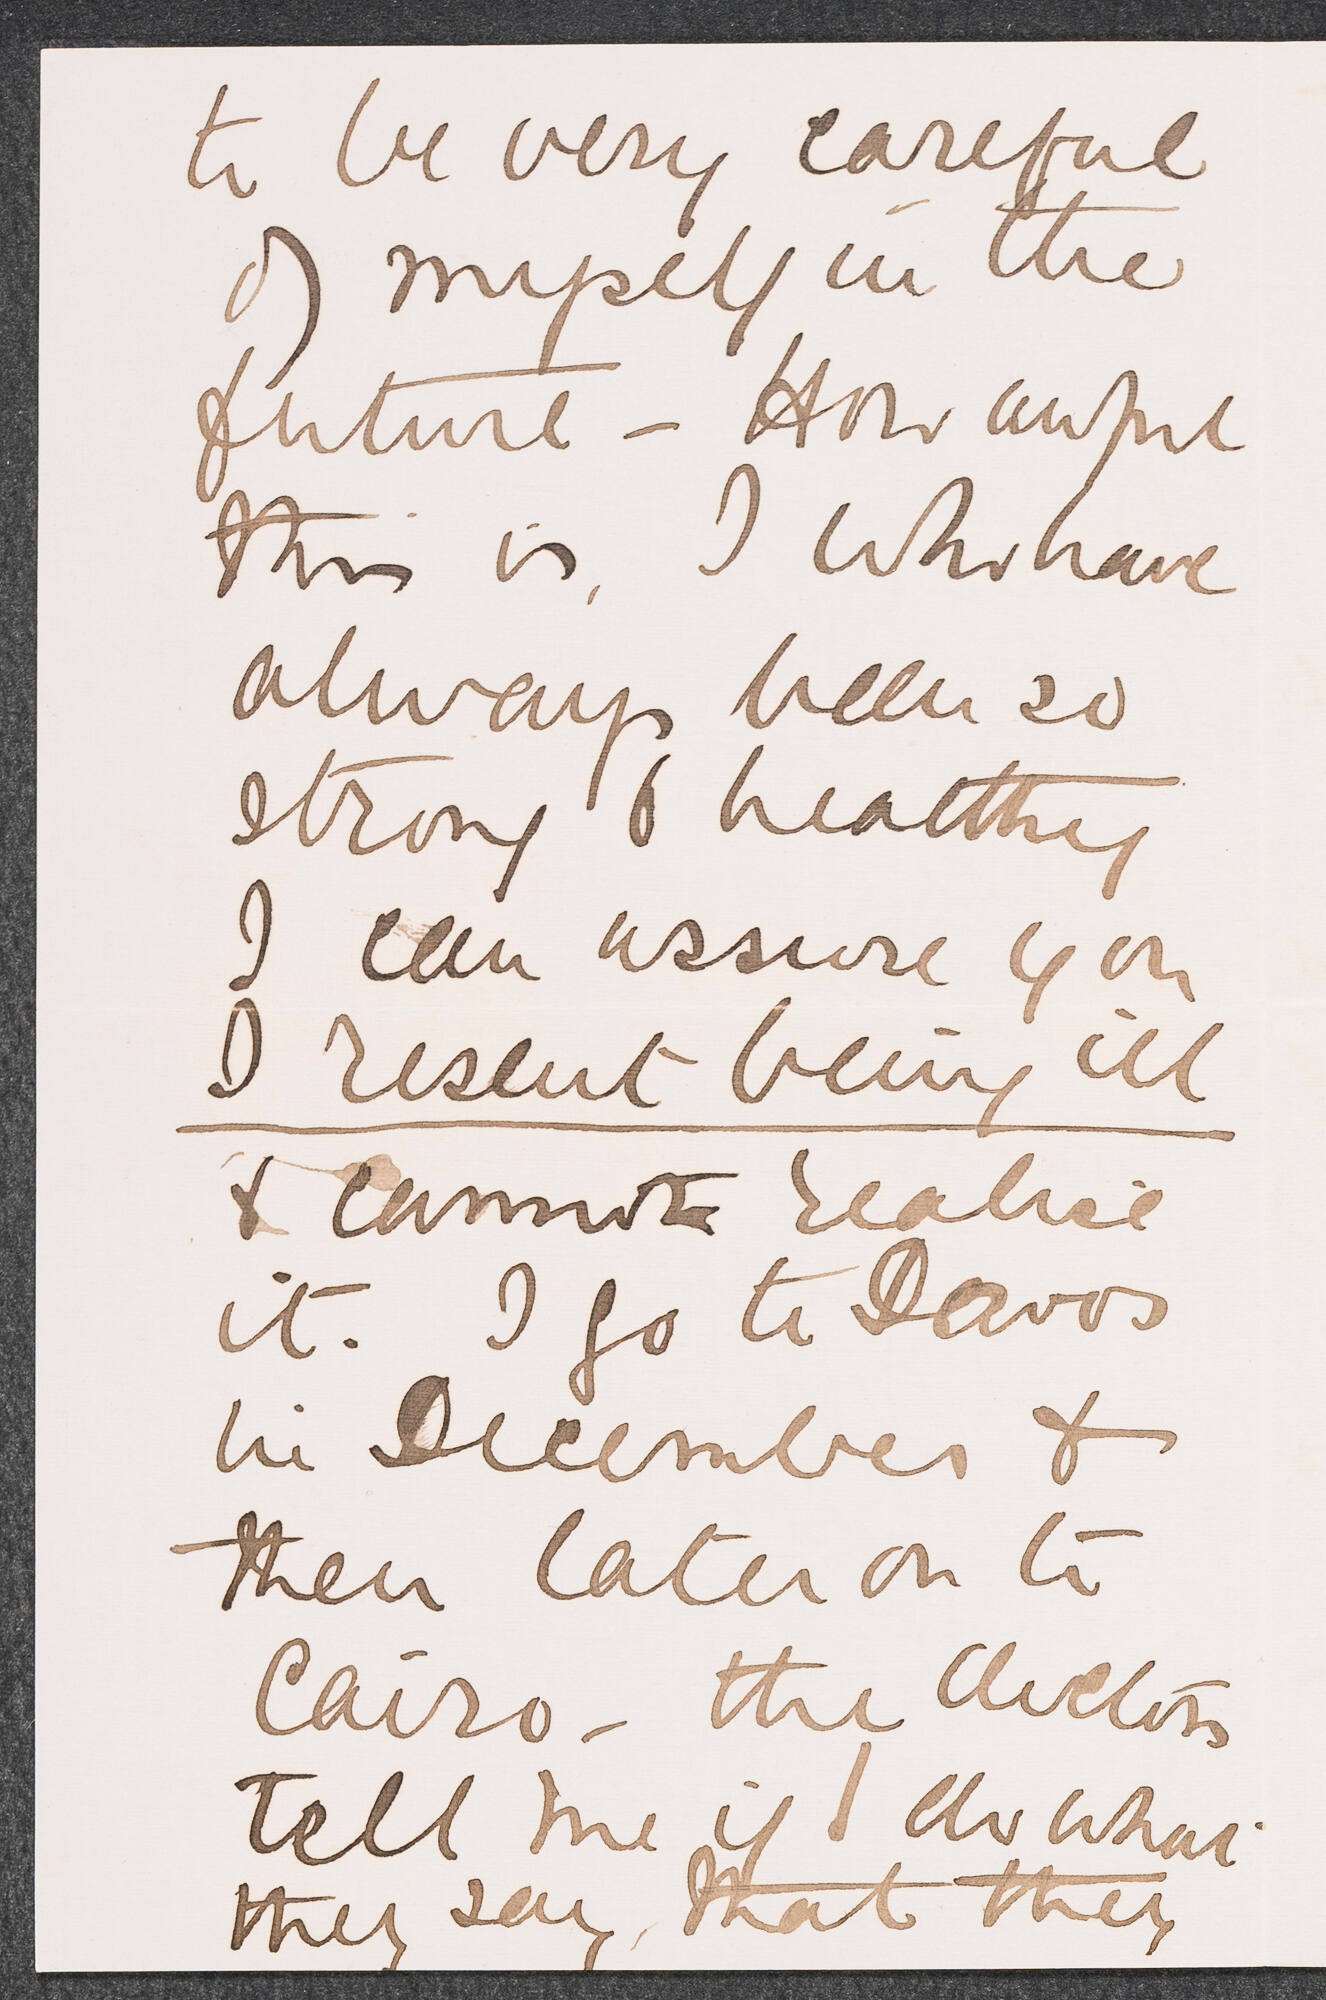 to be very careful
of myself in the
future – How awful
this is, I who have
always been so
strong & healthy
I can assure you
I resent being ill
& cannot realise
it. I go to Davos
in December &
then later on to
Cairo – the doctors
tell me if I do what
they say, that they